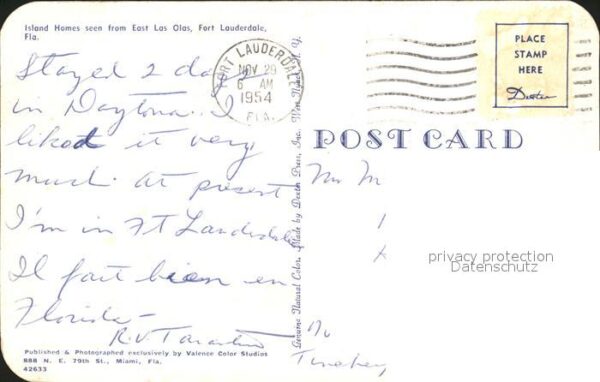 Island Homes seen from East Las Olas, Fort Lauderdale,
Fla.
Stayed 2 days
in Daytona. I
liked it very
much. At present
I'm in Ft Lauderdale
Il fait bien en
Florida -
R.V.
Published & Photographed exclusively by Valence Color Studios
888 N. E. 79th St., Miami, Fla.
42633
FORT LAUDERDALE
NOV 29
6 AM
1954
FLA.
Genuine Natural Color. Made by Dexter Press, Inc. West Nyack, N. Y.
PLACE
STAMP
HERE
Dexter
POST CARD
Mr M
privacy protection
Datenschutz